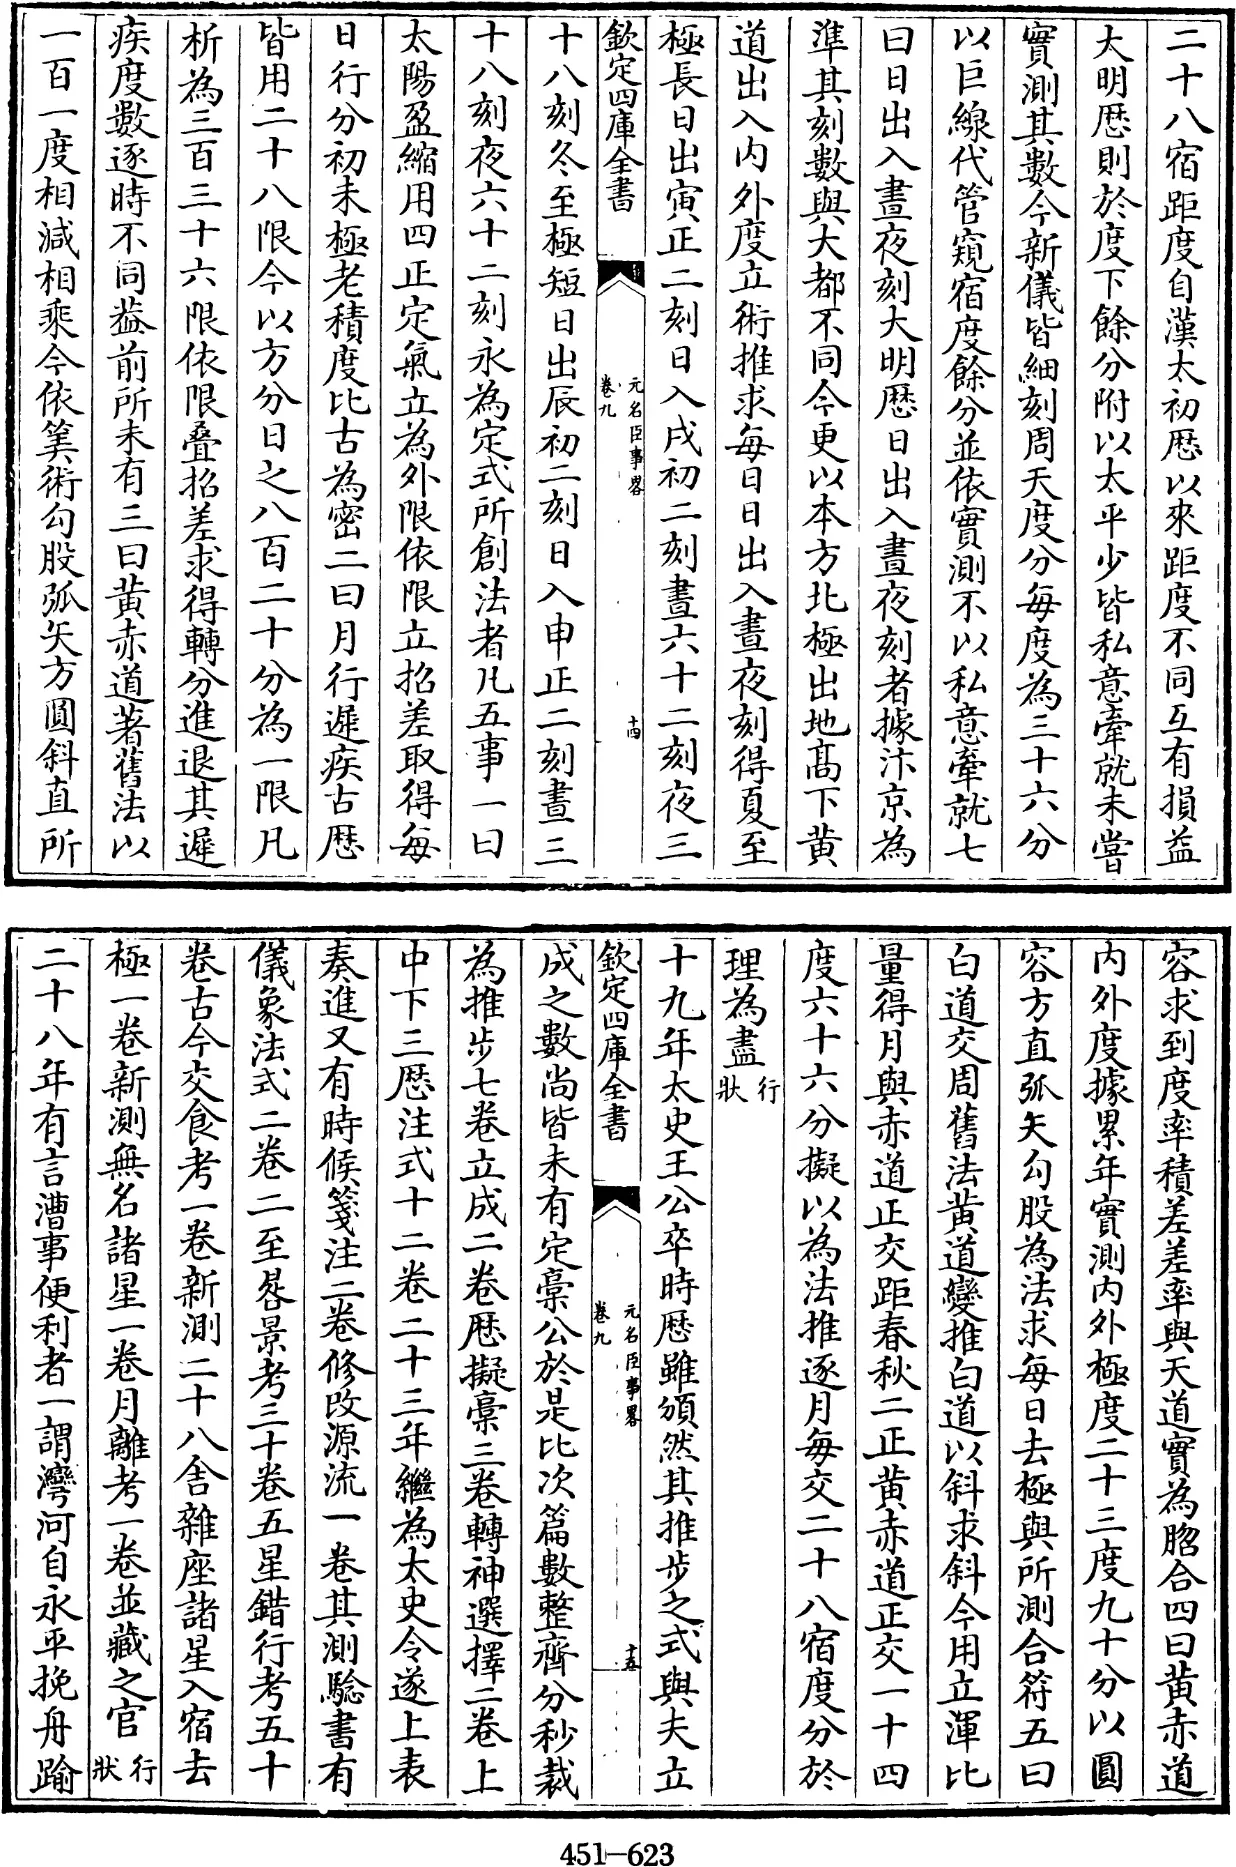 二十八宿距度自漢太初厯以來距度不同互有損益
大明厯則於度下餘分附以太半少皆私意牽就未嘗
實測其數今新儀皆細刻周天度分每度為三十六分
以巨線代管窺宿度餘分並依實測不以私意牽就七
曰日出入晝夜刻大明厯日出入晝夜刻者據汴京為
準其刻數與大都不同今更以本方北極出地髙下黄
道出入内外度立術推求每日日出入晝夜刻得夏至
極長日出寅正二刻日入戌初二刻晝六十二刻夜三
欽定四庫全書
元名臣事畧
卷九
十四
十八刻冬至極短日出辰初二刻日入申正二刻晝三
十八刻夜六十二刻永為定式所創法者凡五事一曰
太陽盈縮用四正定氣立為升限依限立招差取得每
日行分初末極老積度比古為密二曰月行遲疾古厯
皆用二十八限今以方分日之八百二十分為一限凡
析為三百三十六限依限叠招差求得轉分進退其遲
疾度數逐時不同葢前所未有三曰黄赤道著舊法以
一百一度相減相乘今依筭術勾股弧矢方圓斜直所
容求到度率積差差率與天道實為脗合四曰黄赤道
内外度據累年實測内外極度二十三度九十分以圓
容方直弧矢勾股為法求每日去極與所測合符五曰
白道交周舊法黄道變推白道以斜求斜今用立渾比
量得月與赤道正交距春秋二正黄赤道正交一十四
度六十六分擬以為法推逐月每交二十八宿度分於
理為盡行狀
十九年太史王公卒時厯雖頒然其推步之式與夫立
欽定四庫全書
元名臣事畧
卷九
十五
成之數尚皆未有定藁公於是比次篇數整齊分秒裁
為推步七卷立成二卷厯擬藁三卷轉神選擇二卷上
中下三厯注式十二卷二十三年繼為太史令遂上表
奏進又有時候箋注二卷修改源流一卷其測驗書有
儀象法式二卷二至晷景考二十卷五星錯行考五十
卷古今交食考一卷新測二十八舍雜座諸星入宿去
極一卷新測無名諸星一卷月離考一卷並藏之官行狀
二十八年有言漕事便利者一謂灣河自永平挽舟踰
451-623